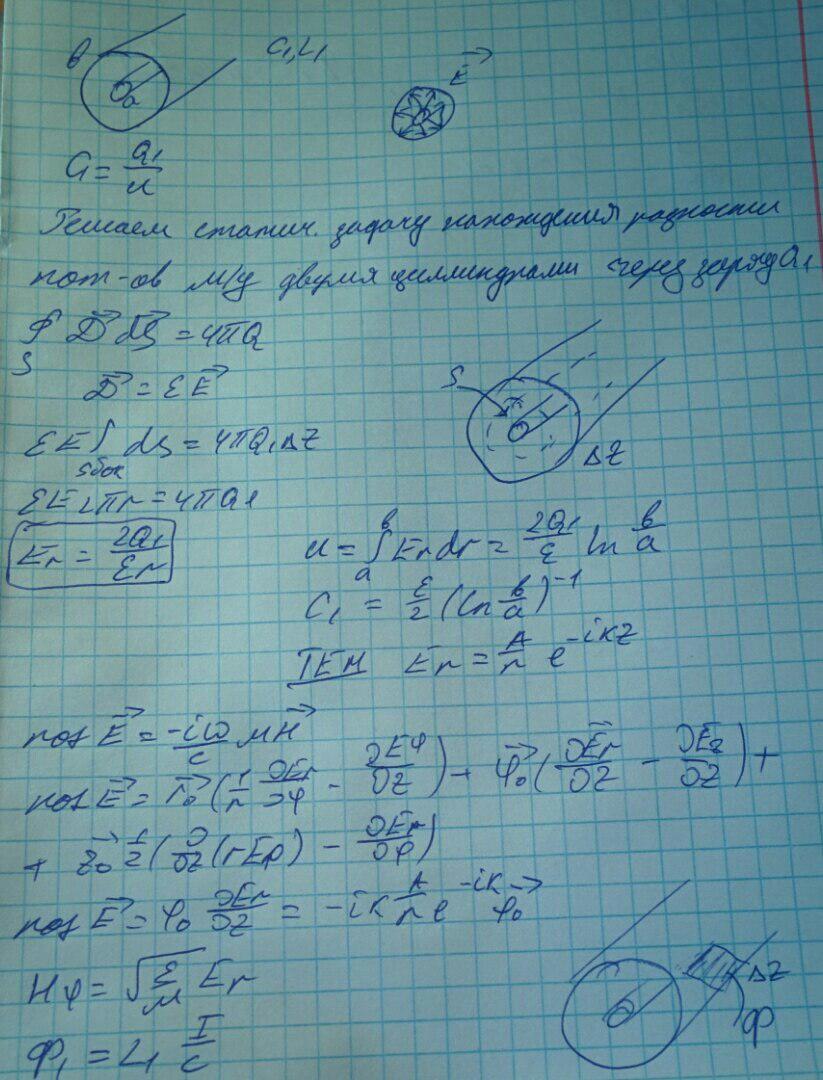 в C₁, L₁
a E⃗
C₁ = Q₁/u
Решаем статич. задачу нахождения разности
пот-ов м/у двумя цилиндрами через заряд Q₁
∮ D⃗ dS⃗ = 4πQ
S
D⃗ = εE⃗
S
εE ∫ dS = 4πQ₁ΔZ
Sбок
ΔZ
εE 2πr = 4πQ₁
Er = 2Q₁/εr
u = ∫ₐᵇ Er dr = 2Q₁/ε ln b/a
C₁ = ε/2 (ln b/a)⁻¹
TEM Er = A/r e^(-ikz)
rot E⃗ = -iω/c μH⃗
rot E⃗ = r⃗₀ (1/r ∂Er/∂φ - ∂Eφ/∂z) + φ⃗₀ (∂E⃗r/∂z - ∂Ez/∂z) +
+ z⃗₀ 1/2 (∂/∂z (rEφ) - ∂Er/∂φ)
rot E⃗ = φ₀ ∂Er/∂z = -ik A/r e^(-ik) φ⃗₀
Hφ = √(ε/μ) Er
ΔZ
Φ
Φ₁ = L₁ I/c